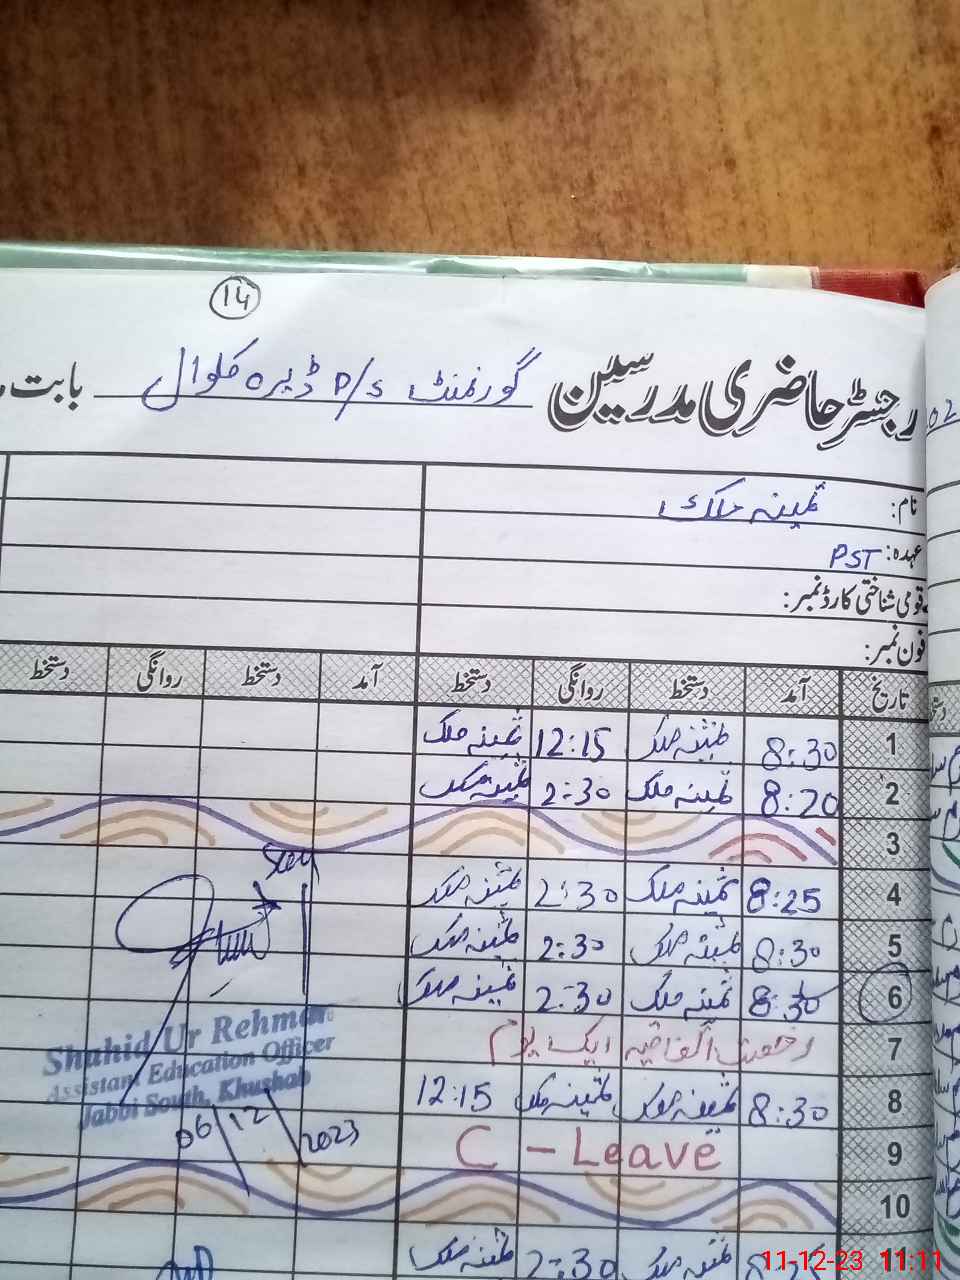 14
رجسٹر حاضری مدرسین گورنمنٹ P/S ڈیرہ کلوال بابت
نام: ثمینہ ملک
عہدہ: PST
قومی شناختی کارڈ نمبر:
فون نمبر:
تاریخ آمد دستخط روانگی دستخط آمد دستخط روانگی دستخط
1 8:30 ثمینہ ملک 12:15 ثمینہ ملک
2 8:20 ثمینہ ملک 2:30 ثمینہ ملک
3
4 8:25 ثمینہ ملک 2:30 ثمینہ ملک
5 8:30 ثمینہ ملک 2:30 ثمینہ ملک
6 8:30 ثمینہ ملک 2:30 ثمینہ ملک
7 رخصت اتفاقیہ ایک یوم
8 8:30 ثمینہ ملک ثمینہ ملک 12:15
9 C - Leave
10
ثمینہ ملک 2:30 ثمینہ ملک
Shahid Ur Rehman
Assistant Education Officer
Jabbi South, Khushab
06/12/2023
11-12-23 11:11